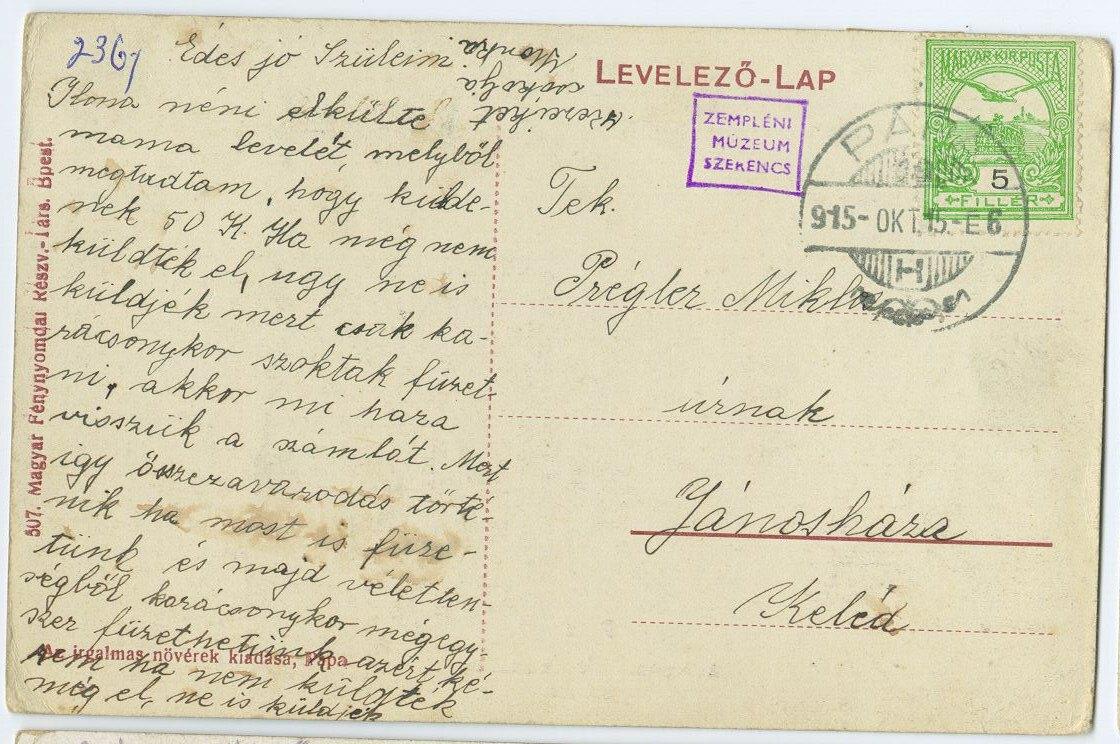 2367
Édes jó Szüleim.
Ilona néni elkülte
mama levelét, melyből
megtudtam, hogy külde-
nek 50 K. Ha még nem
küldték el, ugy ne is
küldjék mert csak ka-
rácsonykor szoktak füzet-
ni, akkor mi haza
visszük a számlát. Mert
igy összezavarodás törté-
nik ha most is füze-
tünk és majd véletlen-
ségből karácsonykor mégegy-
szer füzethetünk azért ké-
rem ha nem küldték
még el, ne is küldjék
szereiket
csókolja
Monka
LEVELEZŐ-LAP
ZEMPLÉNI
MÚZEUM
SZERENCS
MAGYAR KIR. POSTA
5
FILLÉR
PÁPA
915-OKT.15.-E6
H
Tek.
Prégler Miklós
úrnak
Jánosháza
Keléd
507. Magyar Fénynyomdai Részv.-Társ. Bpest.
Az irgalmas növérek kiadása, Pápa